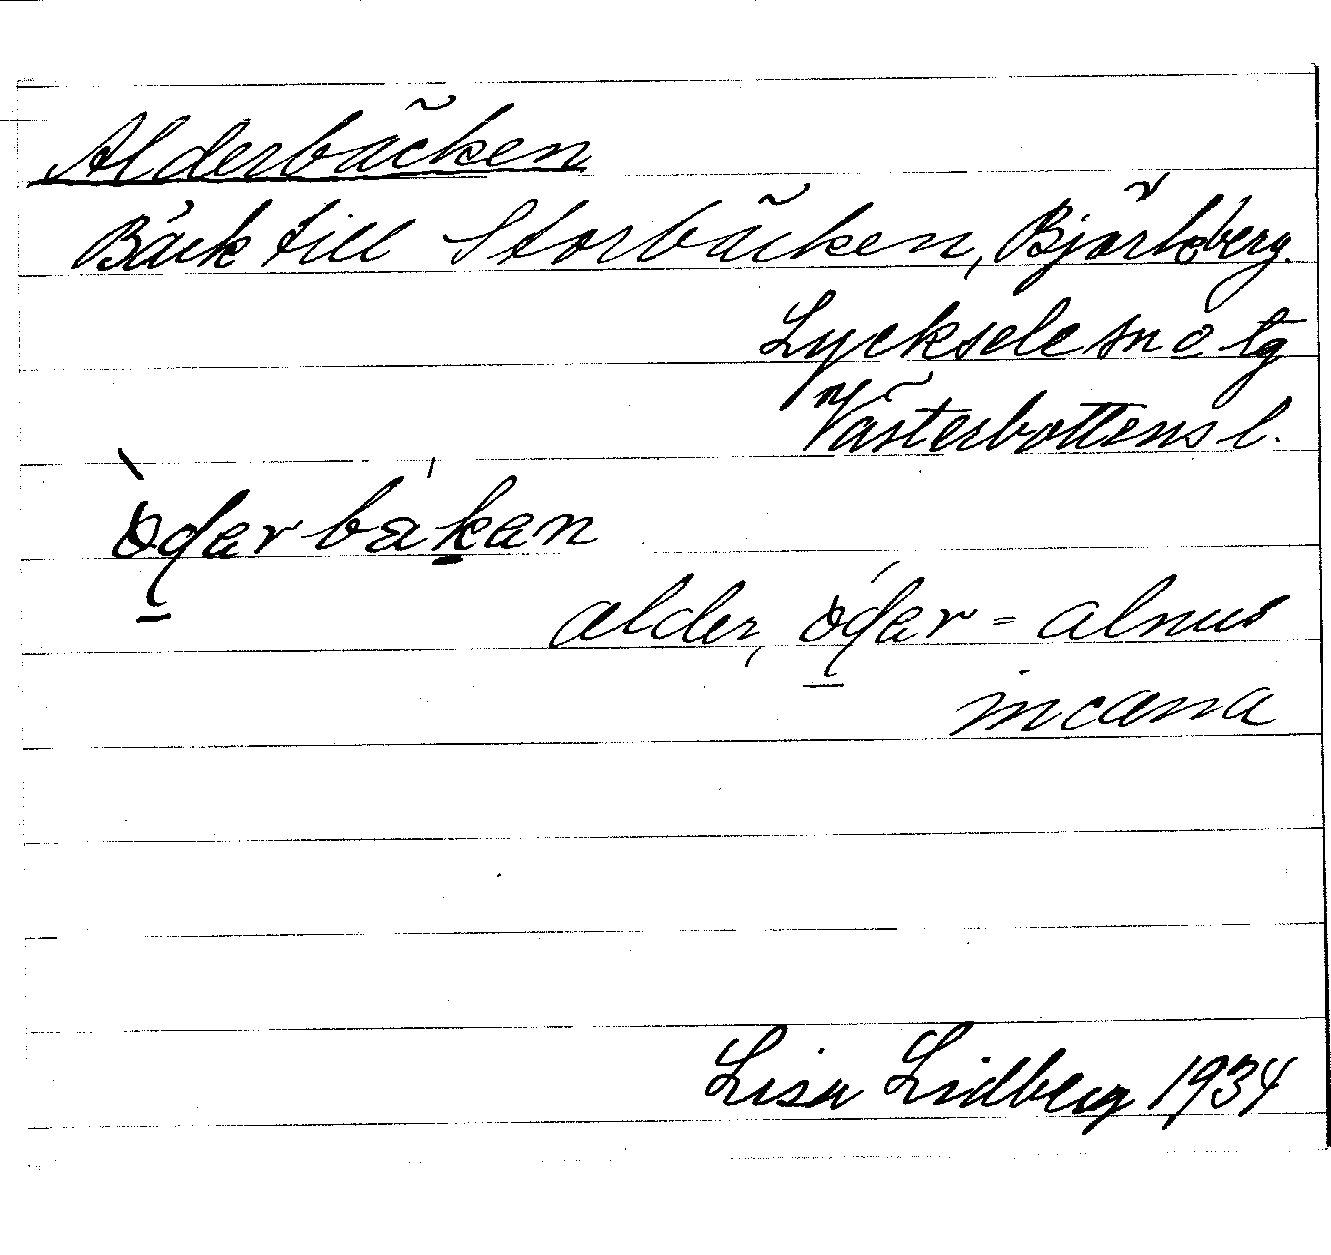 Alderbäcken
Bäck till Storbäcken, Björkberg.
Lycksele sn o tg
Västerbottens l.
òdarbakan
alder, òdar = alnus
incana
Lisa Lidberg 1934